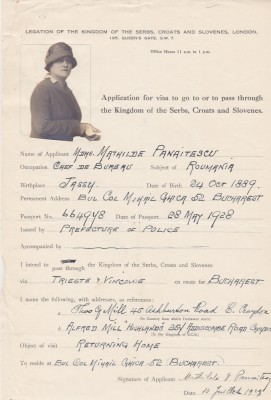 LEGATION OF THE KINGDOM OF THE SERBS, CROATS AND SLOVENES, LONDON.
195, QUEEN'S GATE, S.W. 7
Office Hours 11 a.m. to 1 p.m.
Application for visa to go to or to pass through
the Kingdom of the Serbs, Croats and Slovenes.
Name of Applicant MDME. MATHILDE PANAITESCU
Occupation CHEF DE BUREAU Subject of ROUMANIA
Birthplace JASSY Date of Birth 24 OCT 1889.
Permanent Address BUL COL MIHAIL GHICA 52 BUCHAREST
Passport No. 664948 Date of Passport 28 MAY 1928
Issued by PREFECTURE OF POLICE
Accompanied by
I intend to pass through the Kingdom of the Serbs, Croats and Slovenes
via TRIESTE & VINCOVCE en route for BUCHAREST
I name the following, with addresses, as references:
Mill 45 Ashburton Road E. Croydon
ALFRED MILL 351 ADDISCOMBE ROAD CROYDON
Object of visit RETURNING HOME
To reside at BUL COL MIHAIL GHICA 52 BUCHAREST.
Signature of Applicant Mathilde Panaitescu
Date